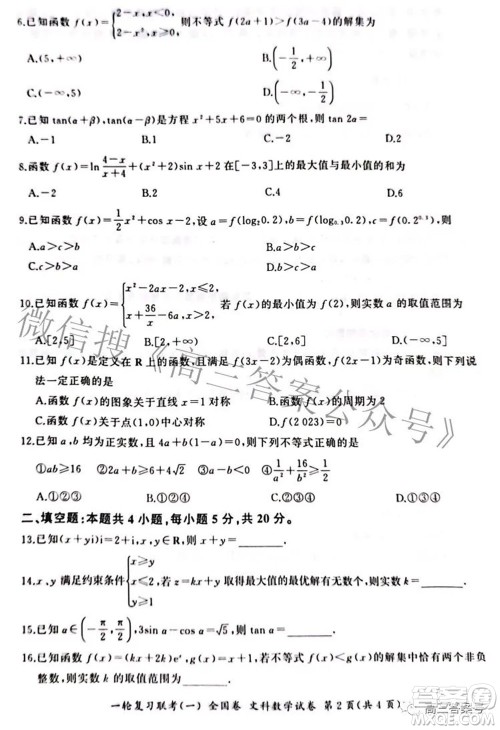 6.已知函数 f(x)={2-x,x<0, 2-x²,x≥0, 则不等式 f(2a+1)>f(3a-4)的解集为
A.(5,+∞) B.(-1/2,+∞)
C.(-∞,5) D.(-∞,-1/2)
7.已知 tan(α+β),tan(α-β)是方程 x²+5x+6=0 的两个根,则 tan 2α=
A.-1 B.1 C.-2 D.2
8.函数 f(x)=ln (4-x)/(x+4) +(x²+2)sin x+2 在[-3,3]上的最大值与最小值的和为
A.-2 B.2 C.4 D.6
9.已知函数 f(x)=1/2 x²+cos x-2,设 a=f(log₂0.2),b=f(log₀.₂ 0.3),c=f(2⁰·³),则
A.a>c>b B.a>b>c
C.c>a>b D.b>c>a
10.已知函数 f(x)={x²-2ax-2,x≤2, x+36/x-6a,x>2, 若 f(x)的最小值为 f(2),则实数 a 的取值范围为
A.[2,5] B.[2,+∞) C.[2,6] D.(-∞,5]
11.已知 f(x)是定义在 R 上的函数,若 f(3x-2)为偶函数,f(2x-1)为奇函数,则下列说
法一定正确的是
A.函数 f(x)的图象关于直线 x=1 对称 B.函数 f(x)的周期为 2
C.函数 f(x)关于点(1,0)中心对称 D.f(2 023)=0
12.已知 a,b 均为正实数,且 4a+2b=ab,则下列不等式正确的是
①ab≥16 ②2a+b≥6+4√2 ③a+b≥6+4√2 ④1/a²+16/b²≥1/2
A.①③ B.②④ C.①③④ D.②③④
二、填空题:本题共 4 小题,每小题 5 分,共 20 分。
13.已知(x+yi)i=2+i,x,y∈R,则 x-y=________.
14.x,y 满足约束条件{x≤2, 若 z=x+ky 取得最大值的最优解不唯一,则实数 k=________.
15.已知 α∈(-π/2,π/2),3sin α-cos α=√5,则 tan α=________.
16.已知函数 f(x)=(kx+2k)eˣ,g(x)=x+1,若 f(x)<g(x)的解集中恰有两
个正整数,则实数 k 的取值范围为________.
一轮复习联考(一) 全国卷 文科数学试卷 第 2 页(共 4 页)
微信搜《高三答案公众号》
高三答案号